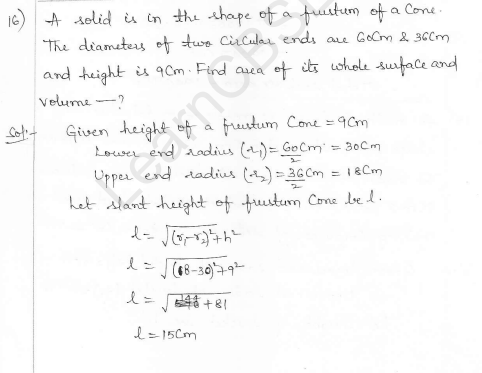 16) A solid is in the shape of a frustum of a Cone.
The diameters of two Circular ends are 60Cm & 36Cm
and height is 9Cm. Find area of its whole surface and
Volume —?
Sol:- Given height of a frustum Cone = 9Cm
Lower end radius (r₁) = 60/2 Cm = 30Cm
Upper end radius (r₂) = 36/2 Cm = 18Cm
Let slant height of frustum Cone be l.
l = √(r₁-r₂)²+h²
l = √(18-30)²+9²
l = √144+81
l = 15Cm
LearnCBSE